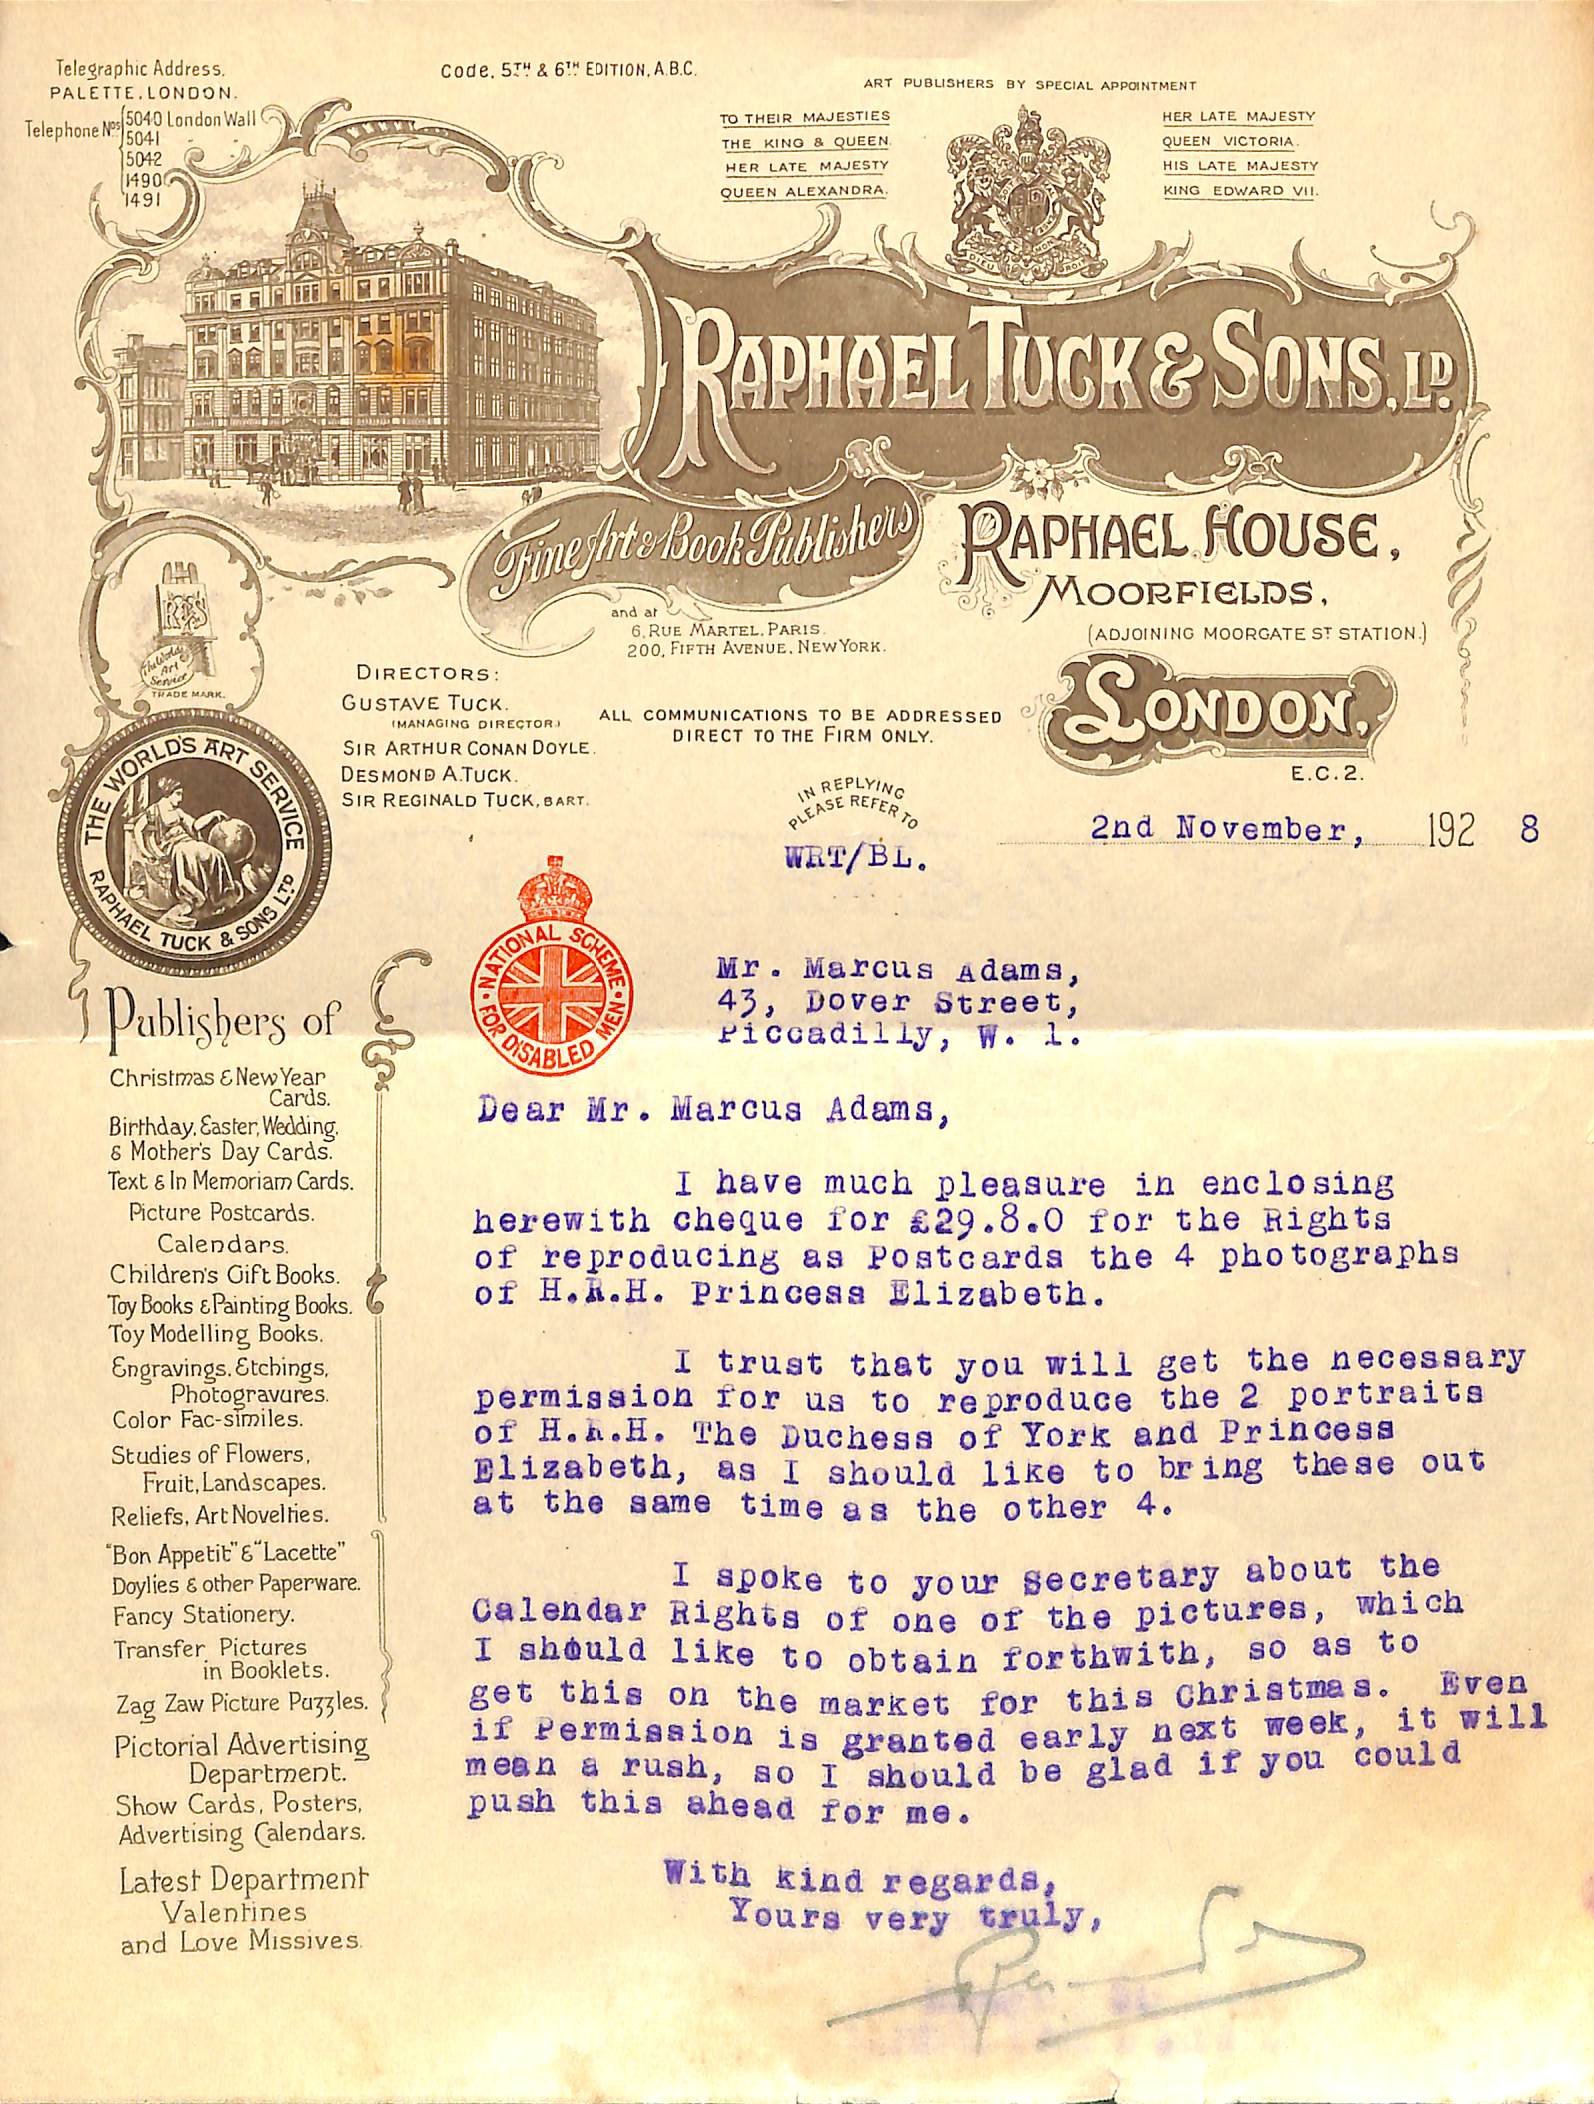 Telegraphic Address.
PALETTE, LONDON.
Telephone Nos 5040 London Wall
5041
5042
1490
1491
Code, 5TH & 6TH EDITION, A.B.C.
ART PUBLISHERS BY SPECIAL APPOINTMENT
TO THEIR MAJESTIES
THE KING & QUEEN.
HER LATE MAJESTY
QUEEN ALEXANDRA.
HER LATE MAJESTY
QUEEN VICTORIA.
HIS LATE MAJESTY
KING EDWARD VII.
DIEU ET MON DROIT
RAPHAEL TUCK & SONS, LD.
Fine Art & Book Publishers
RAPHAEL HOUSE,
MOORFIELDS,
(ADJOINING MOORGATE ST STATION.)
LONDON,
E.C.2.
and at
6, RUE MARTEL, PARIS.
200, FIFTH AVENUE, NEW YORK.
R T & S
The World's
Art
Service
TRADE MARK.
THE WORLD'S ART SERVICE
RAPHAEL TUCK & SONS LTD
DIRECTORS:
GUSTAVE TUCK.
(MANAGING DIRECTOR.)
SIR ARTHUR CONAN DOYLE.
DESMOND A. TUCK.
SIR REGINALD TUCK, BART.
ALL COMMUNICATIONS TO BE ADDRESSED
DIRECT TO THE FIRM ONLY.
IN REPLYING
PLEASE REFER TO
WRT/BL.
2nd November, 192 8
NATIONAL SCHEME
FOR DISABLED MEN
Mr. Marcus Adams,
43, Dover Street,
Piccadilly, W. 1.
Dear Mr. Marcus Adams,
I have much pleasure in enclosing
herewith cheque for £29.8.0 for the Rights
of reproducing as Postcards the 4 photographs
of H.R.H. Princess Elizabeth.
I trust that you will get the necessary
permission for us to reproduce the 2 portraits
of H.R.H. The Duchess of York and Princess
Elizabeth, as I should like to bring these out
at the same time as the other 4.
I spoke to your Secretary about the
Calendar Rights of one of the pictures, which
I should like to obtain forthwith, so as to
get this on the market for this Christmas. Even
if Permission is granted early next week, it will
mean a rush, so I should be glad if you could
push this ahead for me.
With kind regards,
Yours very truly,
Publishers of
Christmas & New Year
Cards.
Birthday, Easter, Wedding,
& Mother's Day Cards.
Text & In Memoriam Cards.
Picture Postcards.
Calendars.
Children's Gift Books.
Toy Books & Painting Books.
Toy Modelling Books.
Engravings, Etchings,
Photogravures.
Color Fac-similes.
Studies of Flowers,
Fruit, Landscapes.
Reliefs, Art Novelties.
"Bon Appetit" & "Lacette"
Doylies & other Paperware.
Fancy Stationery.
Transfer Pictures
in Booklets.
Zag Zaw Picture Puzzles.
Pictorial Advertising
Department.
Show Cards, Posters,
Advertising Calendars.
Latest Department
Valentines
and Love Missives.